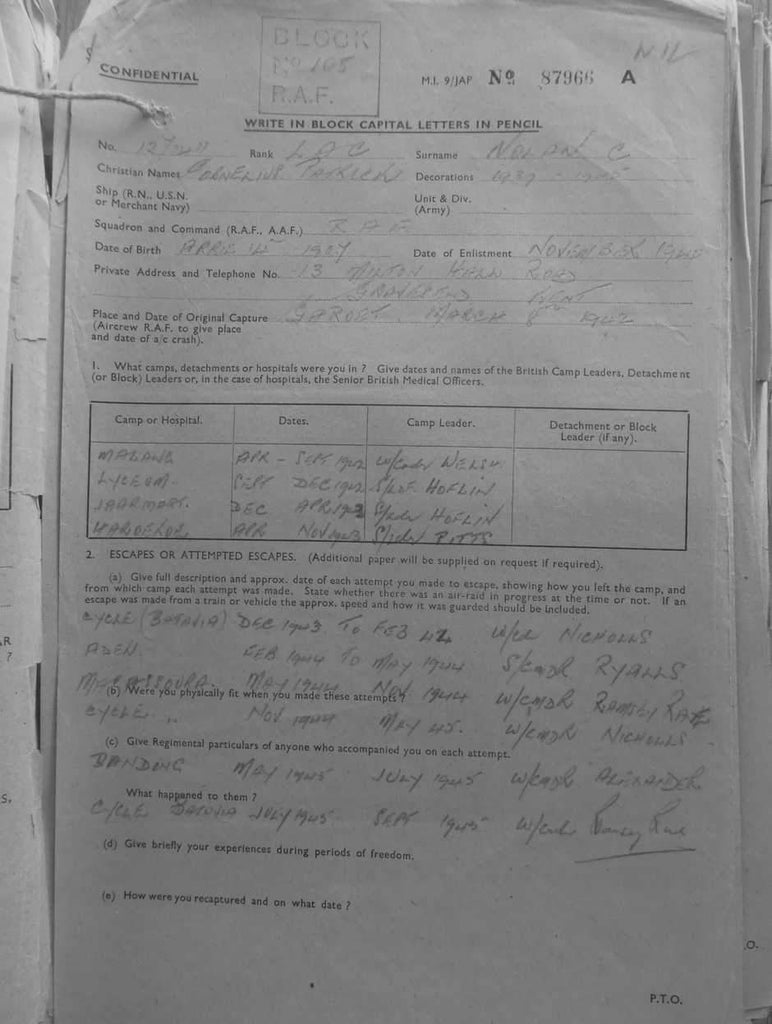 BLOCK
No 105
R.A.F.
NIL
CONFIDENTIAL
M.I. 9/JAP No 87966 A
WRITE IN BLOCK CAPITAL LETTERS IN PENCIL
No. Rank L A C Surname NOLAN C
Christian Names CORNELIUS PATRICK Decorations 1939 - 1945
Ship (R.N., U.S.N. or Merchant Navy)
Unit & Div. (Army)
Squadron and Command (R.A.F., A.A.F.) R A F
Date of Birth APRIL 14 1907 Date of Enlistment NOVEMBER 1940
Private Address and Telephone No. 13 MILTON HALL ROAD
GRAVESEND KENT
Place and Date of Original Capture GAROET. MARCH 8th 1942
(Aircrew R.A.F. to give place
and date of a/c crash).
1. What camps, detachments or hospitals were you in ? Give dates and names of the British Camp Leaders, Detachment
(or Block) Leaders or, in the case of hospitals, the Senior British Medical Officers.
Camp or Hospital. Dates. Camp Leader. Detachment or Block Leader (if any).
MALANG APR - SEPT 1942 W/Cmdr WELSH
LYCEUM. SEPT DEC 1942 HOFLIN
JAARMART. DEC APR 1943 S/Ldr HOFLIN
APR NOV 1943 S/Ldr PITTS
2. ESCAPES OR ATTEMPTED ESCAPES. (Additional paper will be supplied on request if required).
(a) Give full description and approx. date of each attempt you made to escape, showing how you left the camp, and
from which camp each attempt was made. State whether there was an air-raid in progress at the time or not. If an
escape was made from a train or vehicle the approx. speed and how it was guarded should be included.
CYCLE (BATAVIA) DEC 1943 TO FEB 44 NICHOLLS
ADEN. FEB 1944 TO MAY 1944 S/CMDR RYALLS
MACASSOURA. MAY 1944 NOV 1944 W/CMDR RAMSEY RAE
(b) Were you physically fit when you made these attempts ?
CYCLE " NOV 1944 MAY 45. W/CMDR NICHOLLS
(c) Give Regimental particulars of anyone who accompanied you on each attempt.
BANDONG MAY 1945 JULY 1945 W/CMDR ALEXANDER
What happened to them ?
CYCLE BATAVIA JULY 1945 SEPT 1945 W/Cmdr Ramsey Rae
(d) Give briefly your experiences during periods of freedom.
(e) How were you recaptured and on what date ?
P.T.O.